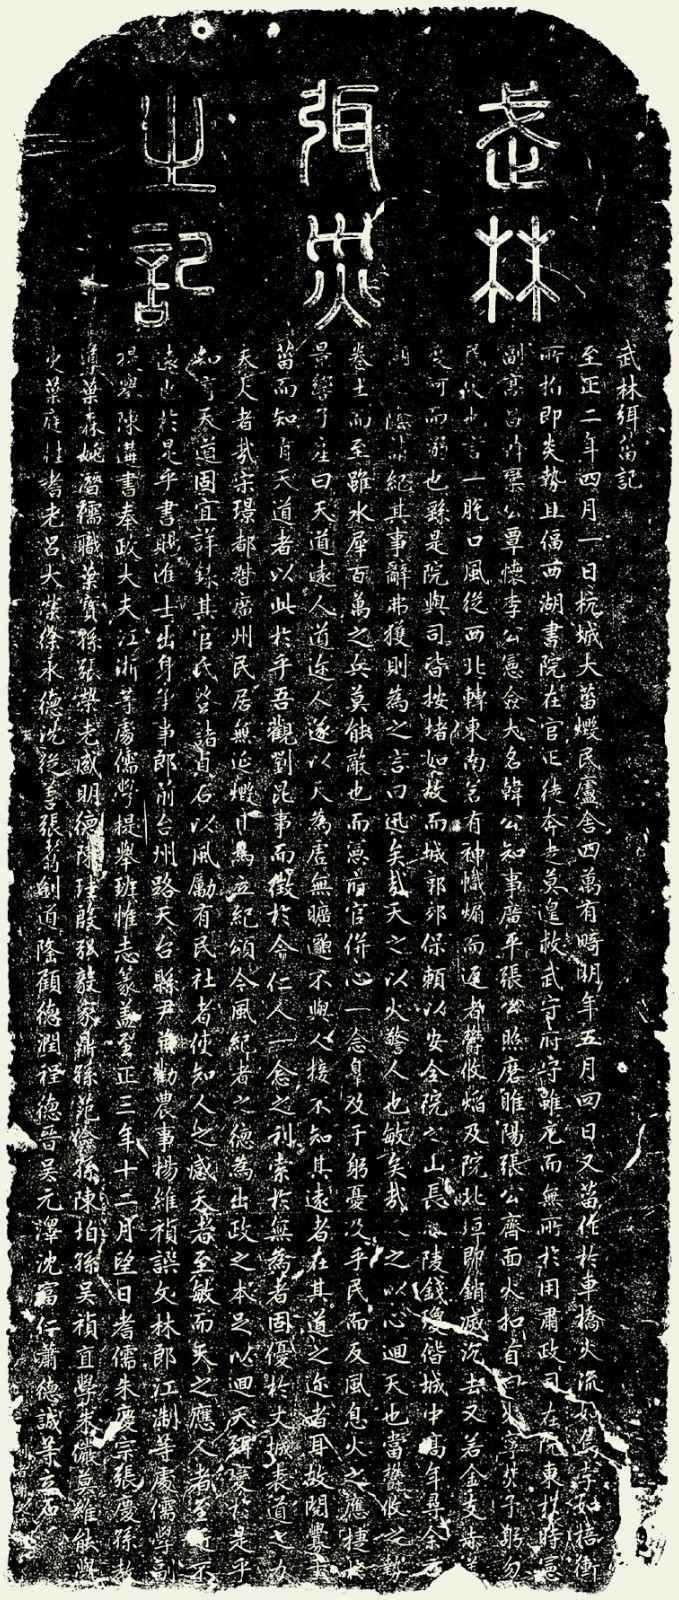 武林
弭災
之記
武林弭菑記
至正二年四月一日杭城大菑燬民廬舍四萬有畸明年五月四日又菑作於車橋火流如烏
所指即炎勢且偪西湖書院在官正徒奔走莫遑救武守府守雖庀而無所於用肅政司在院東椽時憲
副高昌公覃懷李公憲僉大名韓公知事廣平張公照磨睢陽張公齊面火扣首曰火寧焚予躬勿
民言一脫口風從西北轉東南若有神幟煽而返者瞥攸焰及院北垣即銷滅沉去又若金支赤
而弭也繇是院與司皆按堵如故而城郭郊保賴以安全院之山長陵錢瓊偕城中高年尋余
紀其事辭弗獲則為之言曰迅矣哉天之以火警人也敏矣哉人之以心迴天也當攸之勢
卷土而至雖水犀百萬之兵莫能敵也而憲府官併心一念辠及于躬憂及乎民而反風息火之應捷
景響子產曰天道遠人道迩人遂以天為虛無曠邈不與人接不知其遠者在其道之迩者耳故閱
菑而知有天道者以此於乎吾觀劉昆事而徵於今仁人一念之利索於無為者固優於文城表道之力
天人者哉宋璟都督廣州民居無延燬爲立紀頌今風紀者之德為出政之本足以迴天弭變於是乎
知有天道固宜詳錄其官氏名諸貞石以風勵有民社者使知人之感天者至敏而天之應人者至近不
遠也於是乎書賜進士出身承事郎前台州路天台縣尹兼勸農事楊維禎譔文林郎江淛等處儒學副
提舉陳遘書奉政大夫江浙等處儒學提舉班惟志篆蓋至正三年十二月望日耆儒朱慶宗張慶孫教
導葉森姚儒職葉張榮老戚明德陳殷強毅家鼎孫范陳柏孫吳禎直學朱莫雄
史葉庭耆老呂大榮徐永德沈從善張道隆顧德潤德晉吳元澤沈富仁蕭德誠等立石